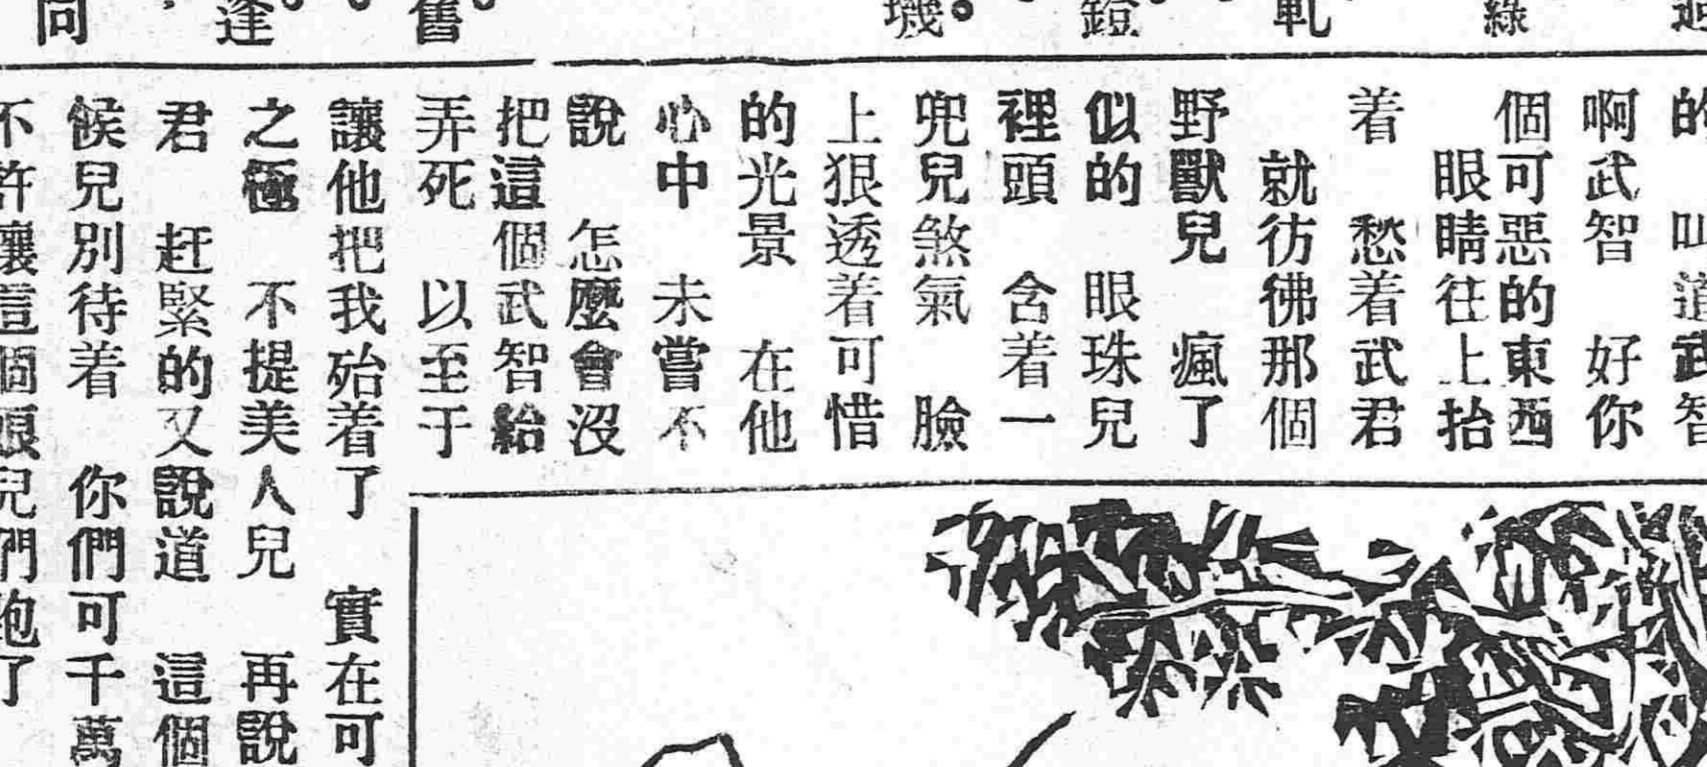 璣。
鐙
軋
綠
舊。
逢。
同
的　叫道武智
啊武智　好你
個可惡的東西
　眼睛往上抬
着　愁着武君
　就彷彿那個
野獸兒　瘋了
似的　眼珠兒
裡頭　含着一
兜兒煞氣　臉
上狠透着可惜
的光景　在他
心中　未嘗不
說　怎麼會沒
把這個武智給
弄死　以至于
讓他把我殆着了　實在可
之極　不提美人兒　再說
君　赶緊的又說道　這個
候兒別待着　你們可千萬
不許讓這個
兒們
了